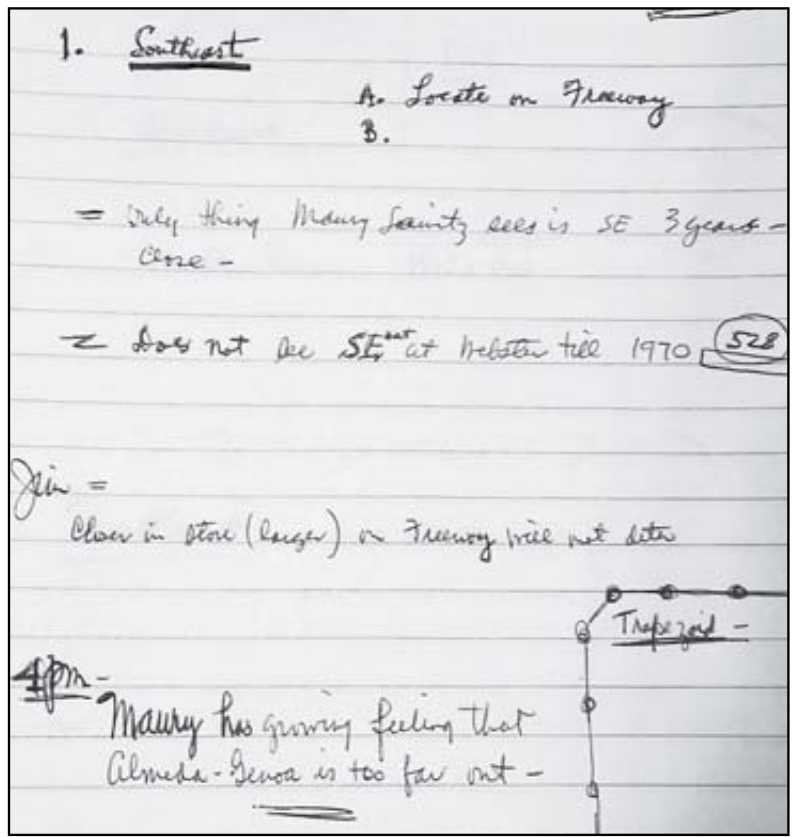 1. Southeast
A. Locate on Freeway
B.
= Only thing Maury sees is SE 3 years -
Close -
= Does not see SE out at Webster till 1970 528
Jim =
Closer in store (larger) on Freeway will not deter
Trapezoid -
4pm -
Maury has growing feeling that
Almeda-Genoa is too far out -